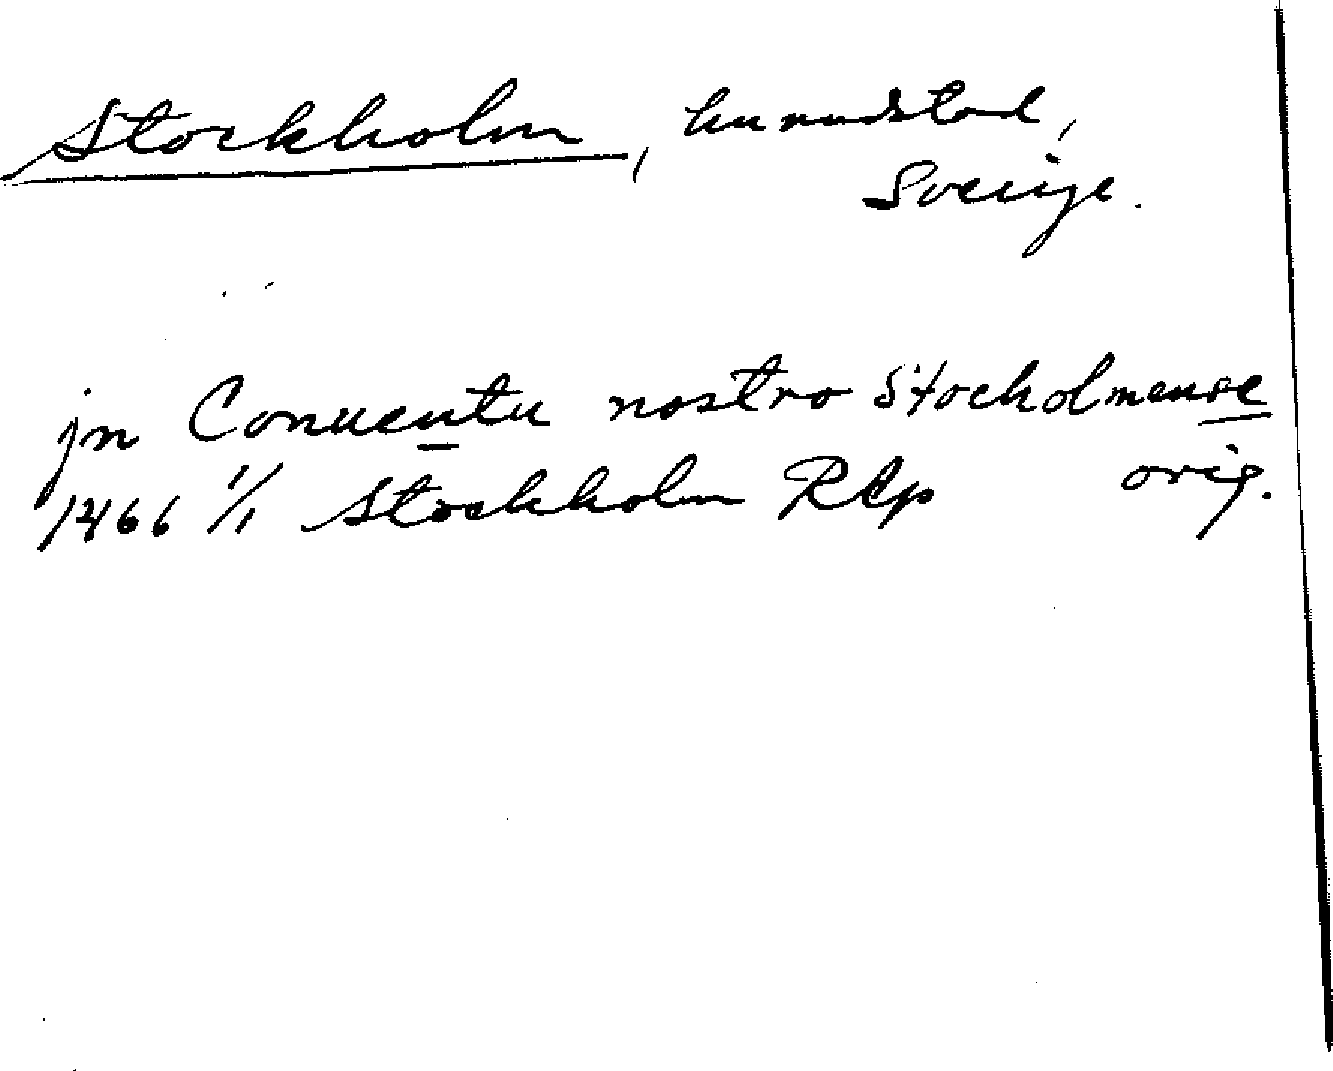 Stockholm, huvudstad,
Sverige.
jn Conuentu nostro Stocholmense
1466 1/1 Stockholm RAp orig.